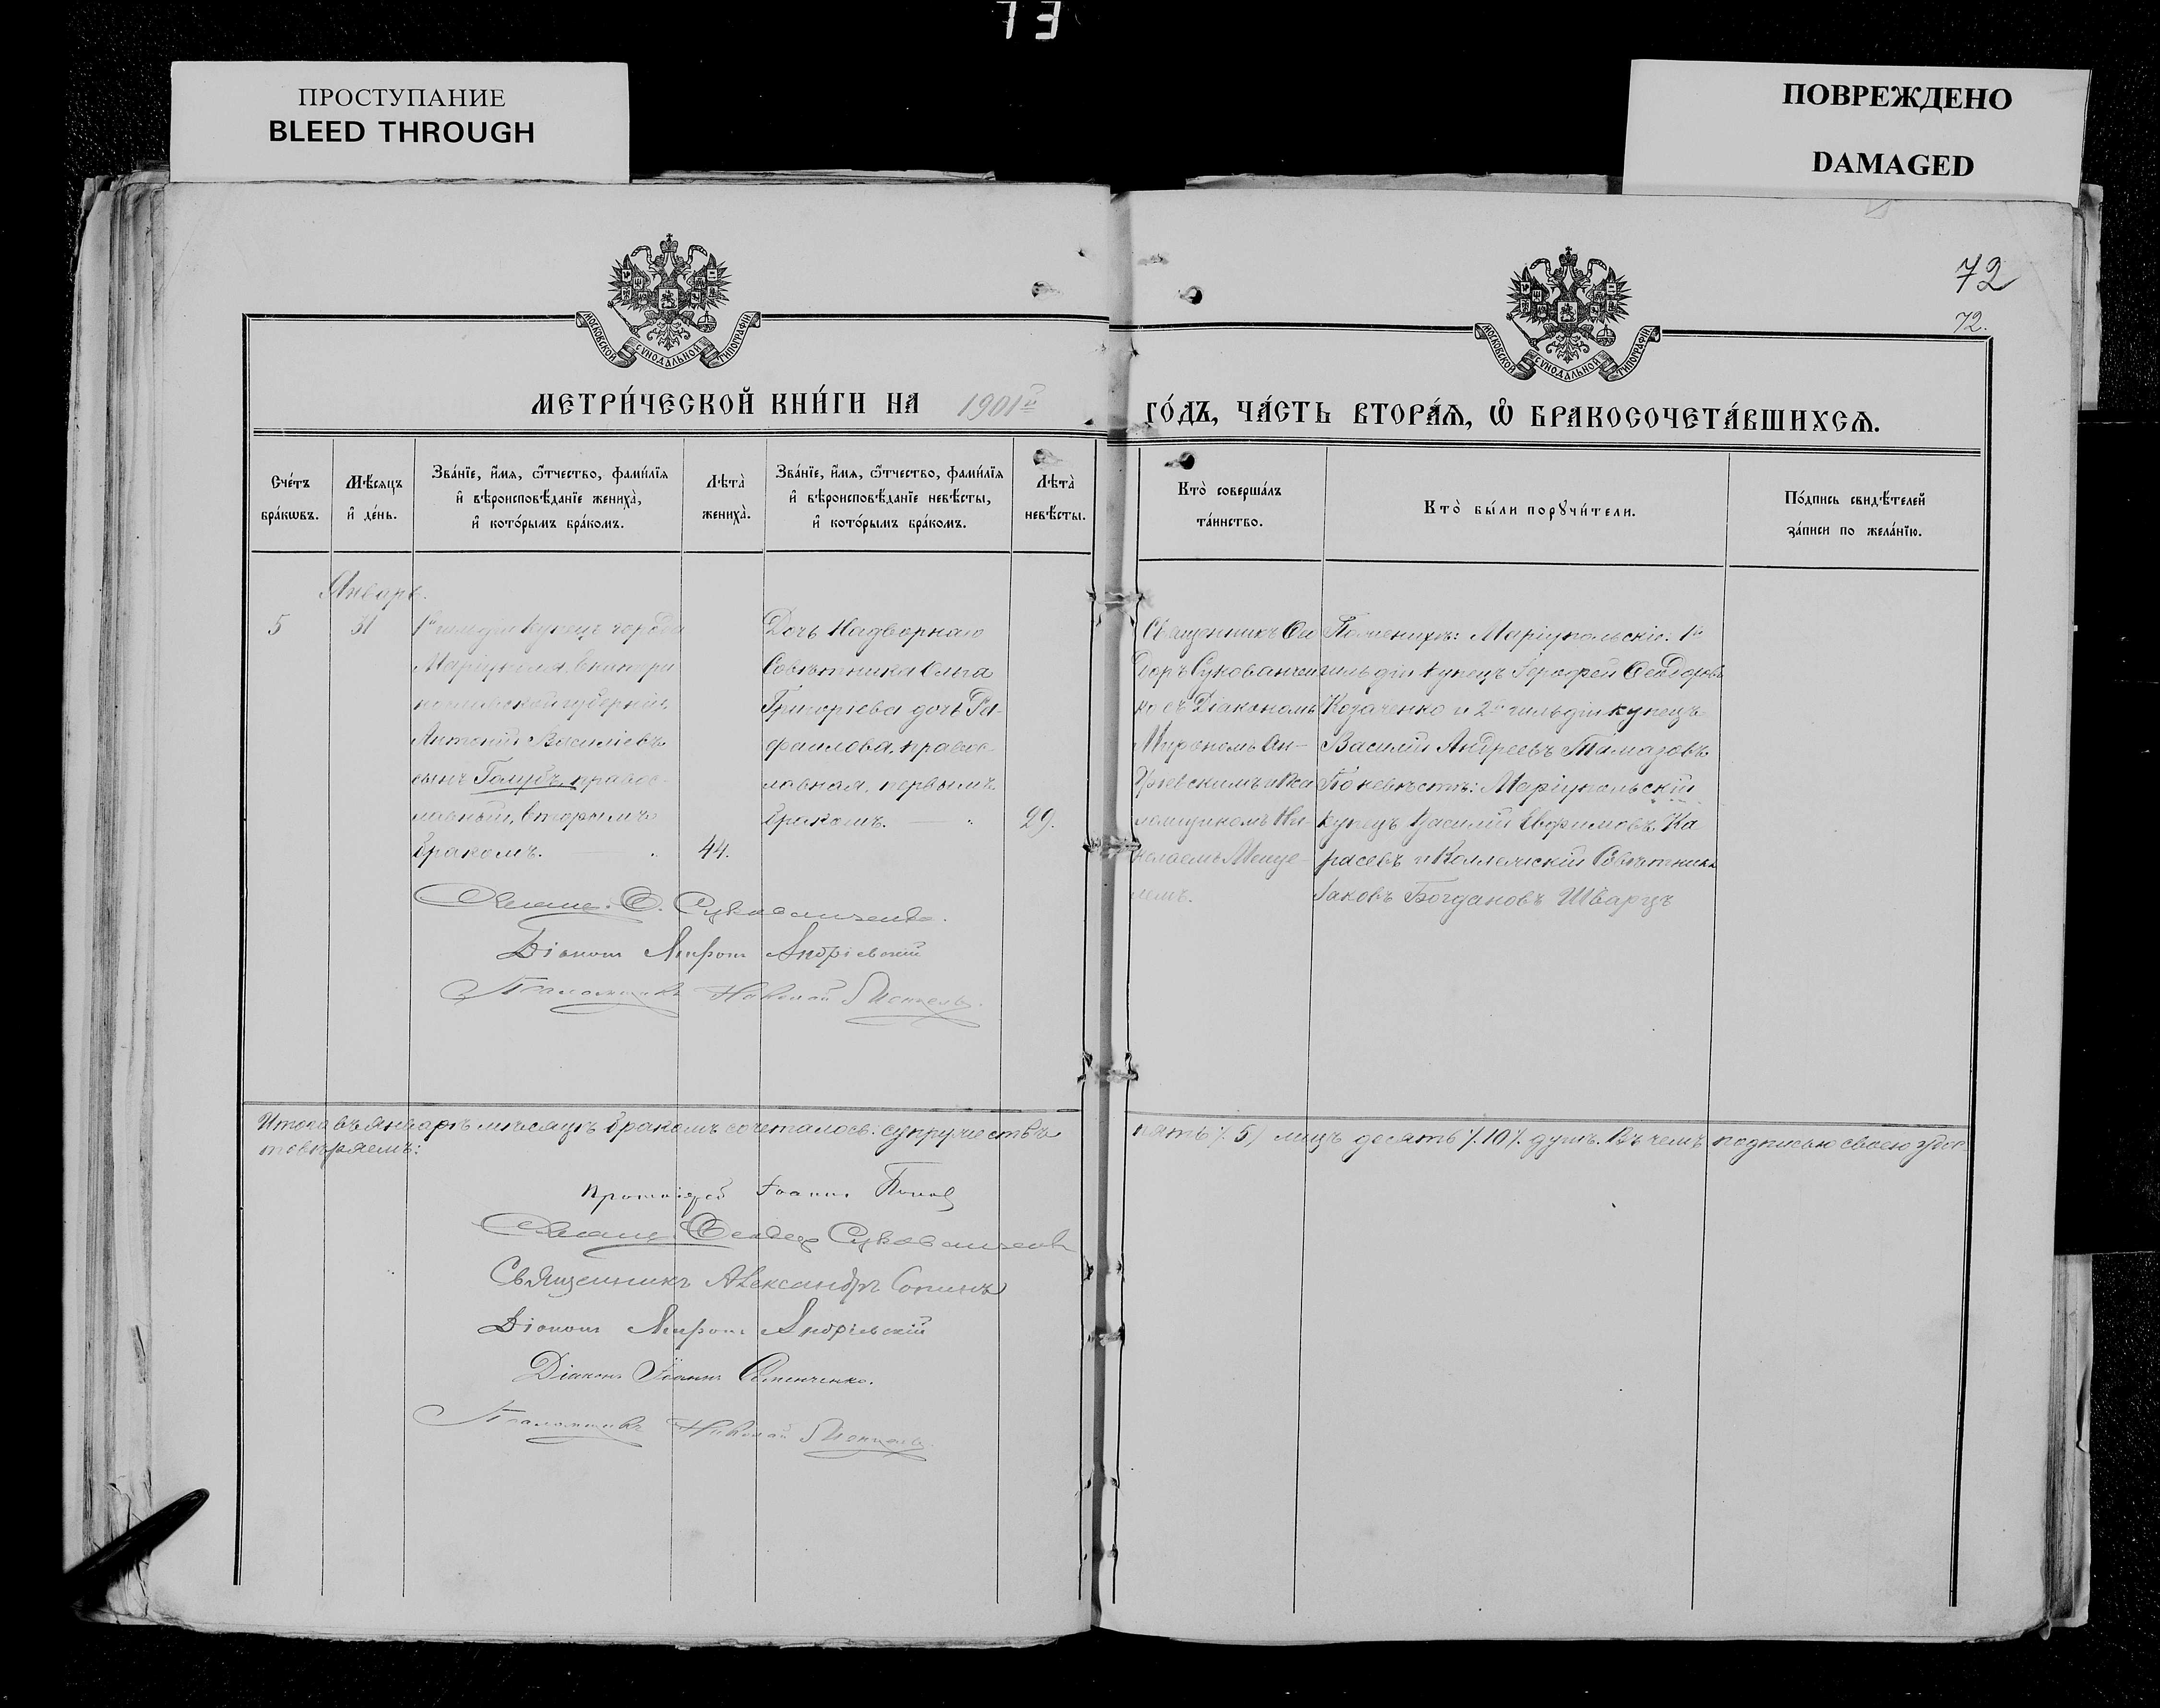 73
ПРОСТУПАНИЕ
BLEED THROUGH
ПОВРЕЖДЕНО
DAMAGED
72
72.
МОСКОВСКОЙ СѴНОДАЛЬНОЙ ТИПОГРАФІИ
МОСКОВСКОЙ СѴНОДАЛЬНОЙ ТИПОГРАФІИ
МЕТРИ́ЧЕСКОЙ КНИ́ГИ НА 1901й
ГО́ДЪ, ЧА́СТЬ ВТОРА́Ѧ, Ѽ БРАКОСОЧЕТА́ВШИХСѦ.
Сче́тъ
бра́кѡвъ.
Мѣ́сяцъ
и҆ де́нь.
Зва́нїе, и҆́мѧ, ѻ҆́тчество, фами́лїѧ
и҆ вѣроисповѣ́данїе жениха̀,
и҆ кото́рымъ бра́комъ.
Лѣта̀
жениха̀.
Зва́нїе, и҆́мѧ, ѻ҆́тчество, фами́лїѧ
и҆ вѣроисповѣ́данїе невѣ́сты,
и҆ кото́рымъ бра́комъ.
Лѣта̀
невѣ́сты.
Кто̀ соверша́лъ
та́инство.
Кто̀ бы́ли порꙋчи́тели.
По́дпись свидѣ́телей
за́писи по жела́нїю.
Январь.
5
31
1й гильдіи купецъ города
Маріуполя, Екатери
нославской губерніи,
Антоній Василіевъ
сынъ Голубъ, правос-
лавный, вторымъ
бракомъ.
44.
Дочь Надворнаго
Совѣтника Ольга
Григорьева дочь Ра-
фаилова, правос-
лавная, первымъ
бракомъ.
29.
Священникъ Ѳео
доръ Сукованчен
ко съ Діакономъ
Мирономъ Ан-
дріевскимъ и Пса
ломщикомъ Ни-
колаемъ Менце-
лемъ.
По женихѣ: Маріупольскіе: 1й
гильдіи купецъ Іерофей Ѳеодоровъ
Козаченко и 2й гильдіи купецъ
Василій Андреевъ Тамазовъ
По невѣстѣ: Маріупольскій
купецъ Василій Евфимовъ Ка
расевъ и Коллежскій Совѣтникъ
Іаковъ Богдановъ Шварцъ
Священ. Ѳ. Сукованченко.
Діаконъ Миронъ Андріевскій
Псаломщикъ Николай Менцель.
Итого въ январѣ мѣсяцѣ бракомъ сочеталось: супружествъ
пять /. 5 / лицъ десять /. 10 /. душъ. Въ чемъ подписью своею удос-
товѣряемъ:
Протоіерей Іоаннъ Попов
Священ. Ѳеодор Сукованченко
Священникъ Александръ Сопинъ
Діаконъ Миронъ Андріевскій
Діаконъ Іоаннъ Степенченко.
Псаломщикъ Николай Менцель.